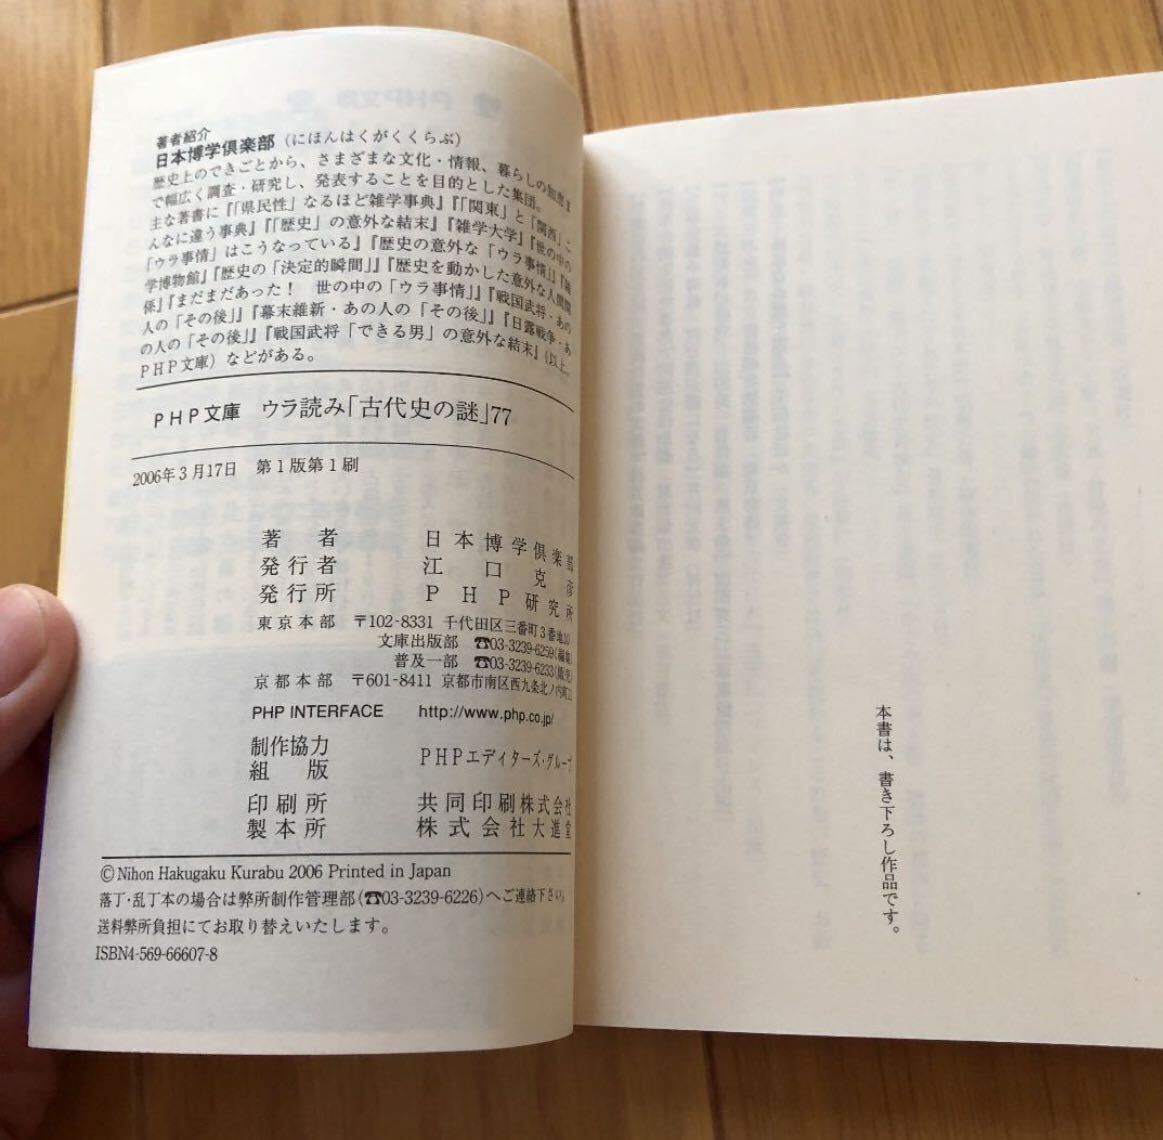 著者紹介
日本博学倶楽部（にほんはくがくくらぶ）
歴史上のできごとから、さまざまな文化・情報、暮らしの知恵ま
で幅広く調査・研究し、発表することを目的とした集団。
主な著書に『「県民性」なるほど雑学事典』『「関東」と「関西」こ
んなに違う事典』『「歴史」の意外な結末』『雑学大学』『世の中の
「ウラ事情」はこうなっている』『歴史の意外な「ウラ事情」』『雑
学博物館』『歴史の「決定的瞬間」』『歴史を動かした意外な人間関
係』『まだまだあった！　世の中の「ウラ事情」』『戦国武将・あの
人の「その後」』『幕末維新・あの人の「その後」』『日露戦争・あ
の人の「その後」』『戦国武将「できる男」の意外な結末』（以上、
ＰＨＰ文庫）などがある。
ＰＨＰ文庫　ウラ読み「古代史の謎」77
2006年3月17日　第1版第1刷
著　者　日本博学倶楽部
発行者　江口克彦
発行所　ＰＨＰ研究所
東京本部　〒102-8331　千代田区三番町3番地10
文庫出版部　☎03-3239-6259（編集）
普及一部　☎03-3239-6233（販売）
京都本部　〒601-8411　京都市南区西九条北ノ内町11
PHP INTERFACE　http://www.php.co.jp/
制作協力
組　版　ＰＨＰエディターズ・グループ
印刷所　共同印刷株式会社
製本所　株式会社大進堂
©Nihon Hakugaku Kurabu 2006 Printed in Japan
落丁・乱丁本の場合は弊所制作管理部（☎03-3239-6226）へご連絡下さい。
送料弊所負担にてお取り替えいたします。
ISBN4-569-66607-8
本書は、書き下ろし作品です。